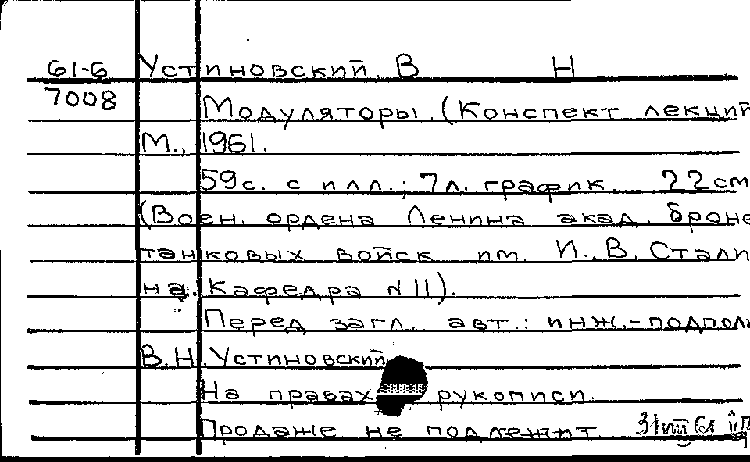 61-6 Устиновский, В Н
7008 Модуляторы. (Конспект лекций
М., 1961.
59с. с илл.; 7л. график. 22см
(Воен. ордена Ленина акад. броне
танковых войск им. И. В. Стали
на. Кафедра №11).
Перед загл. авт.: инж.-подпол
В.Н. Устиновский
На правах рукописи.
Продаже не подлежит.